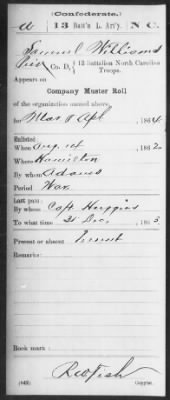 (Confederate.)
W 13 Batt'n L. Art'y. N C.
Samuel Williams
Co. D, 13 Battalion North Carolina Troops.
Appears on
Company Muster Roll
of the organization named above,
for Mar & Apl, 1864
Enlisted:
When Aug 14, 1862
Where
By whom Adams
Period War
Last paid:
By whom Capt Huggins
To what time 31 Dec, 1863
Present or absent Present
Remarks:
Book mark:
(642)
Copyist.